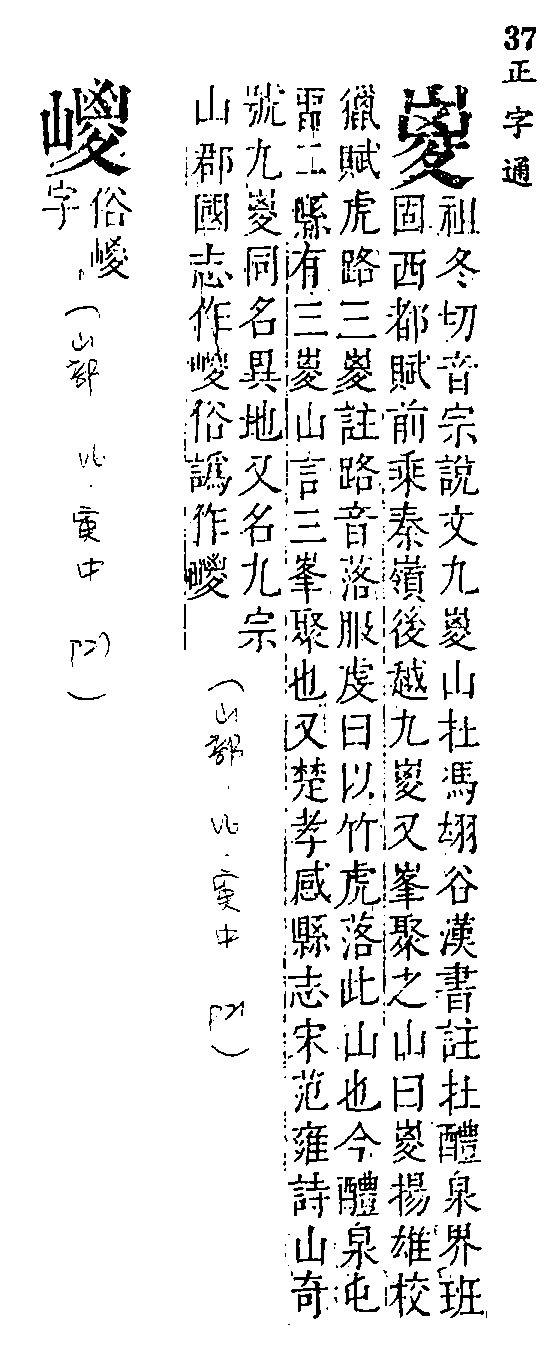 37
正字通
嵏
祖冬切音宗說文九嵏山在馮翊谷漢書註在醴泉界班
固西都賦前乘秦嶺後越九嵏又峯聚之山曰嵏揚雄校
獵賦虎路三嵏註路音落服虔曰以竹虎落此山也今醴泉屯
畱二縣有三嵏山言三峯聚也又楚孝感縣志宋范雍詩山奇
號九嵏同名異地又名九宗
山郡國志作嵕俗譌作㚇
(山部.以.寅中 P21)
嵕
俗嵕
字
(山部 以.寅中 P27)